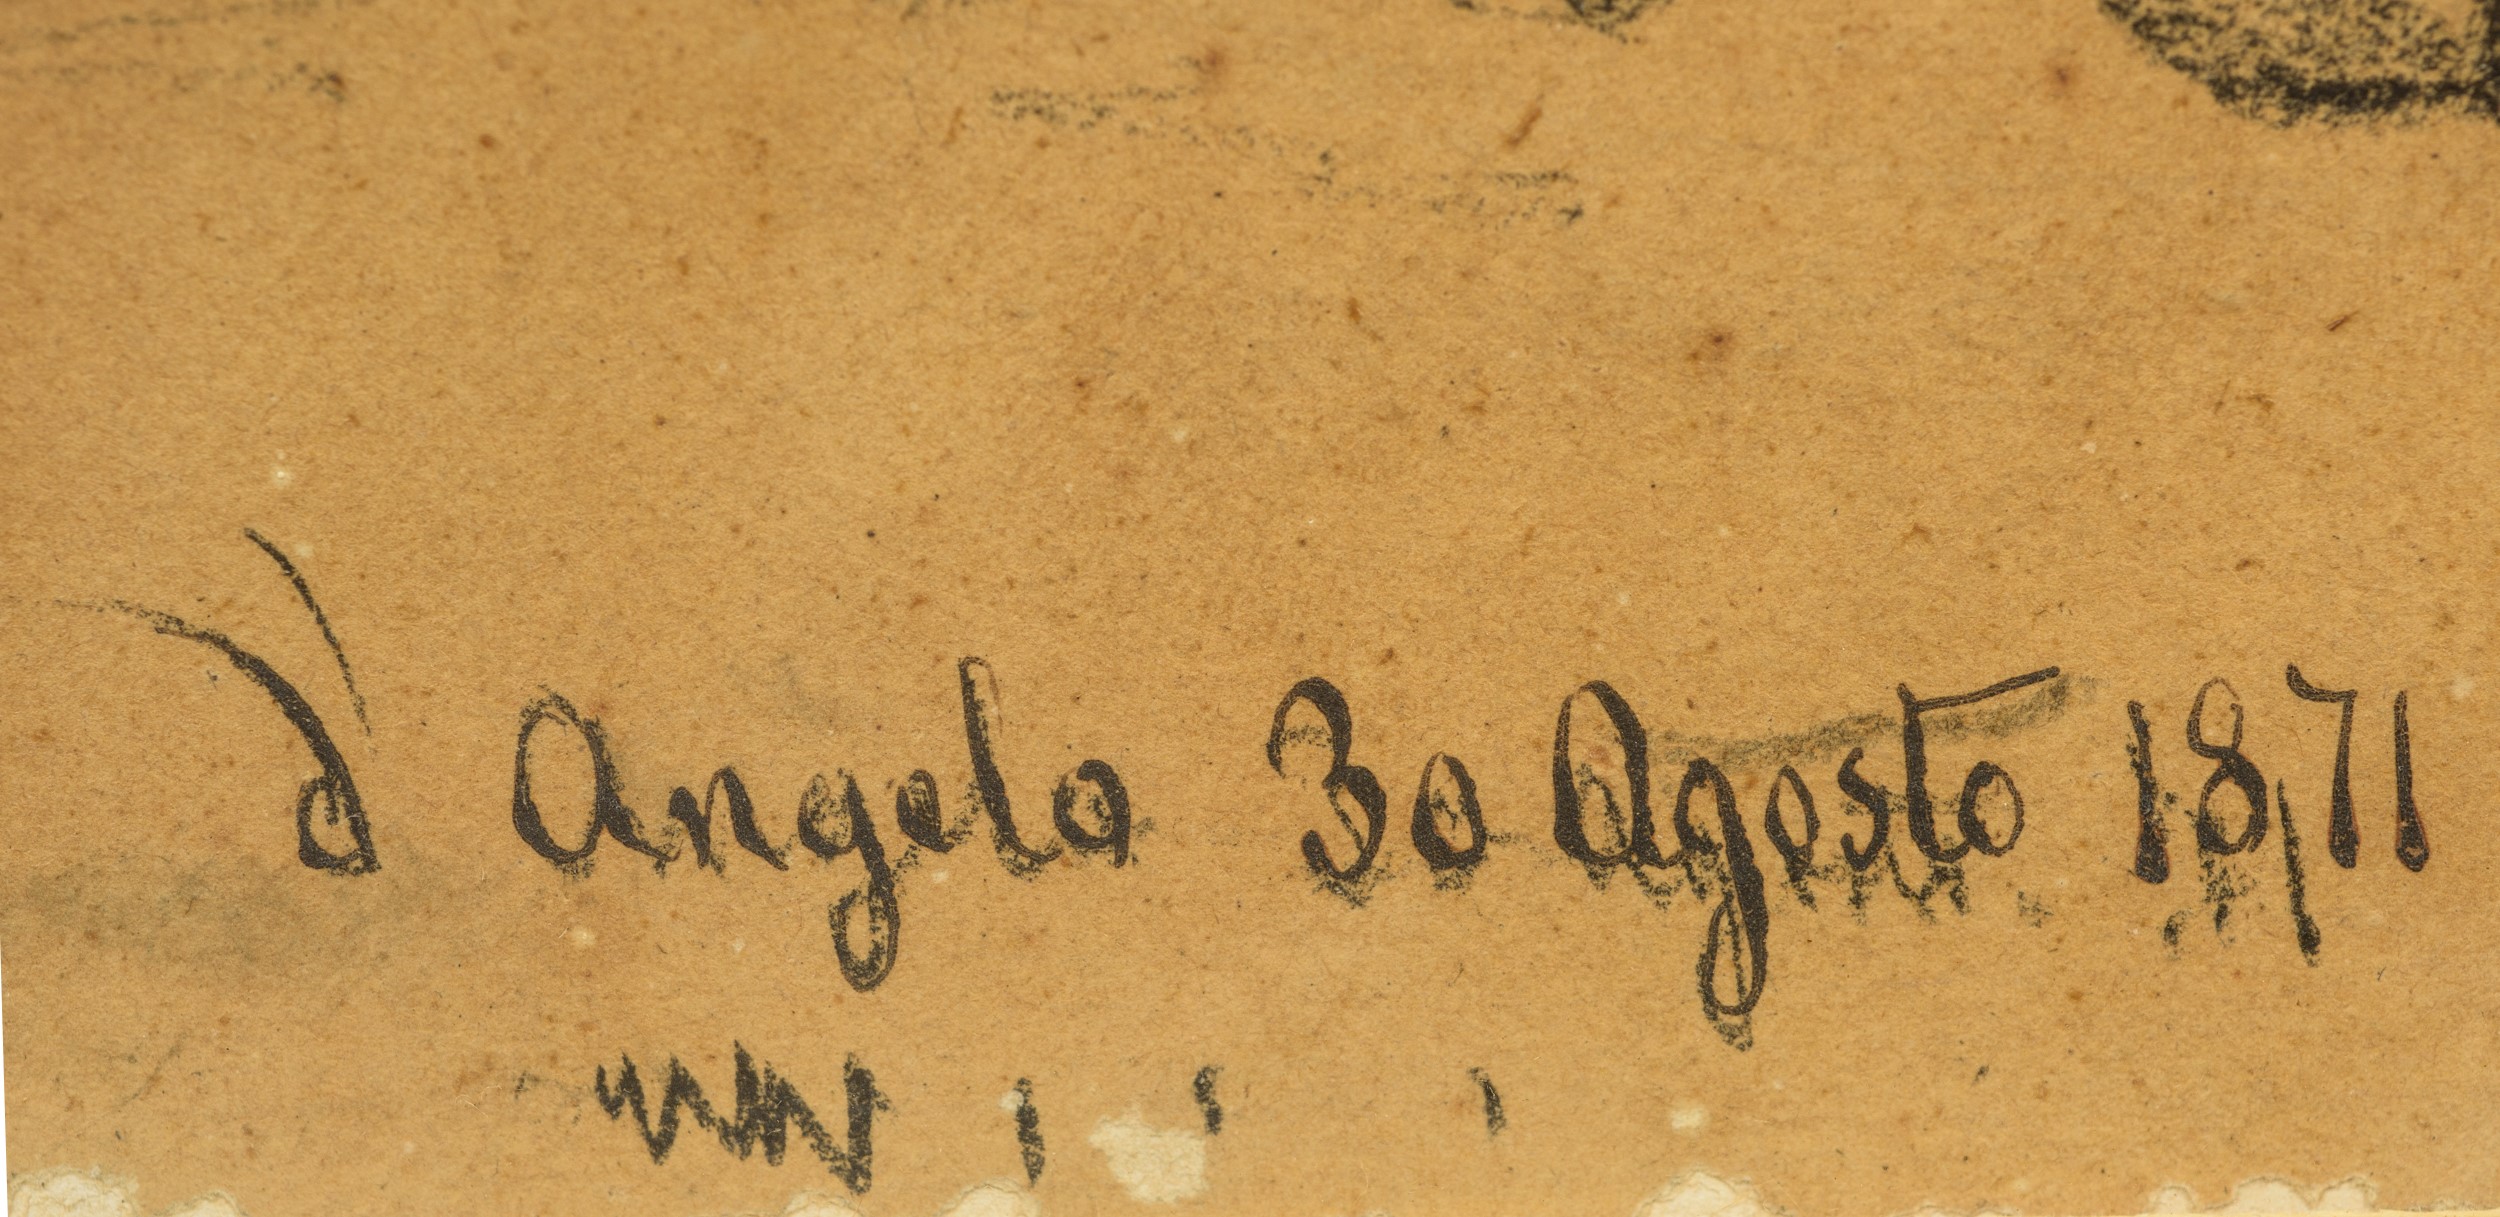 d Angelo 30 Agosto 1871